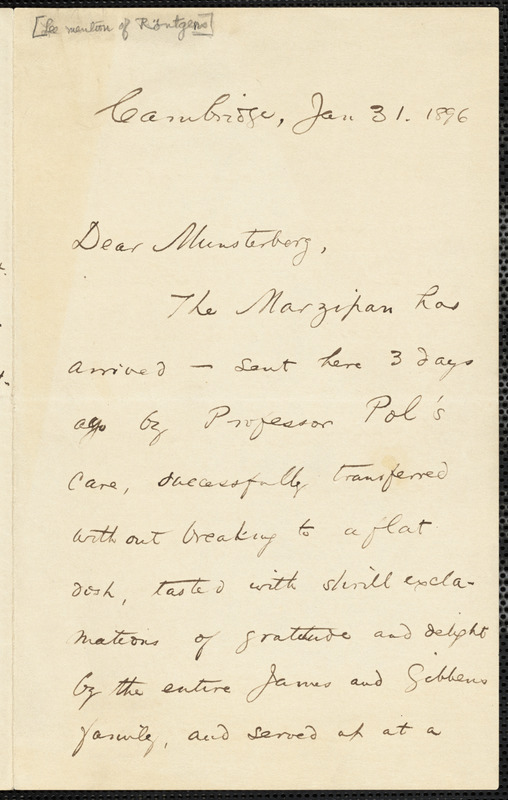 [See mention of Röntgens]
Cambridge, Jan 31. 1896
Dear Munsterberg,
The Marzipan has
arrived – sent here 3 days
ago by Professor Pol's
care, successfully transferred
without breaking to a flat
dish, tasted with shrill excla-
mations of gratitude and delight
by the entire James and Gibbens
family, and served up at a